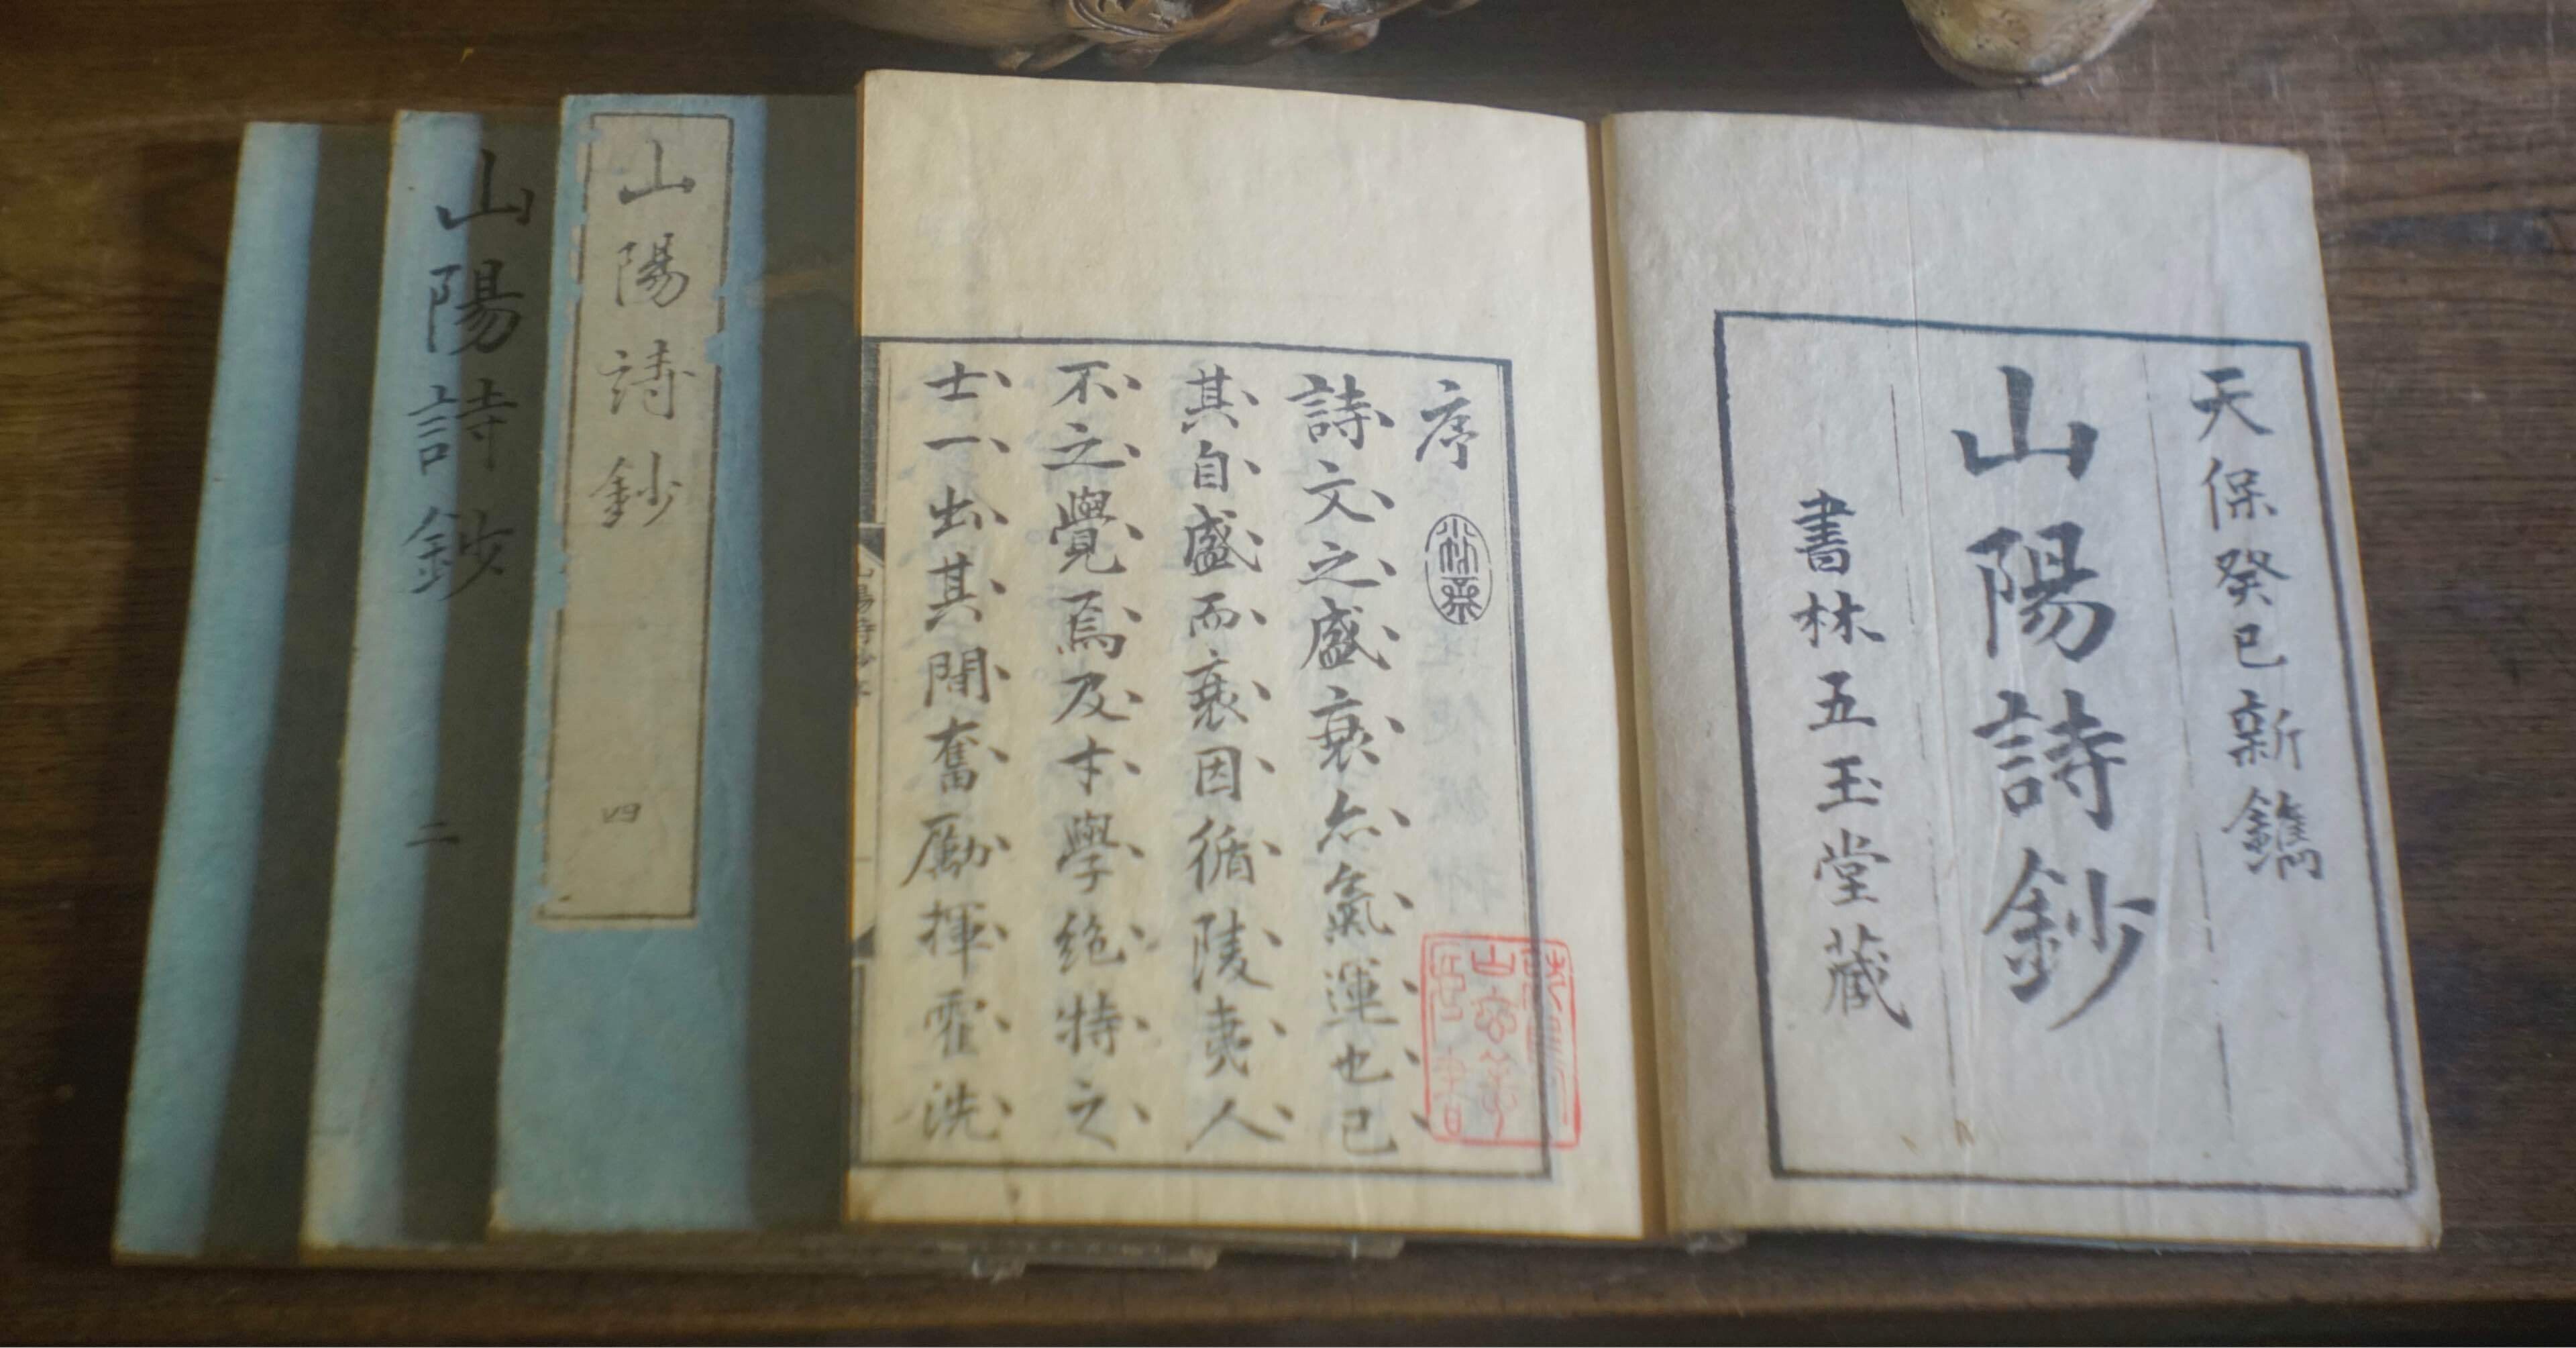 天保癸巳新鐫
山陽詩鈔
書林五玉堂藏
序
詩文之盛衰亦氣運也已
其自盛而衰因循陵夷人
不之覺焉及才學絶特之
士一出其間奮勵揮霍洗
山陽詩鈔 四
山陽詩鈔 二